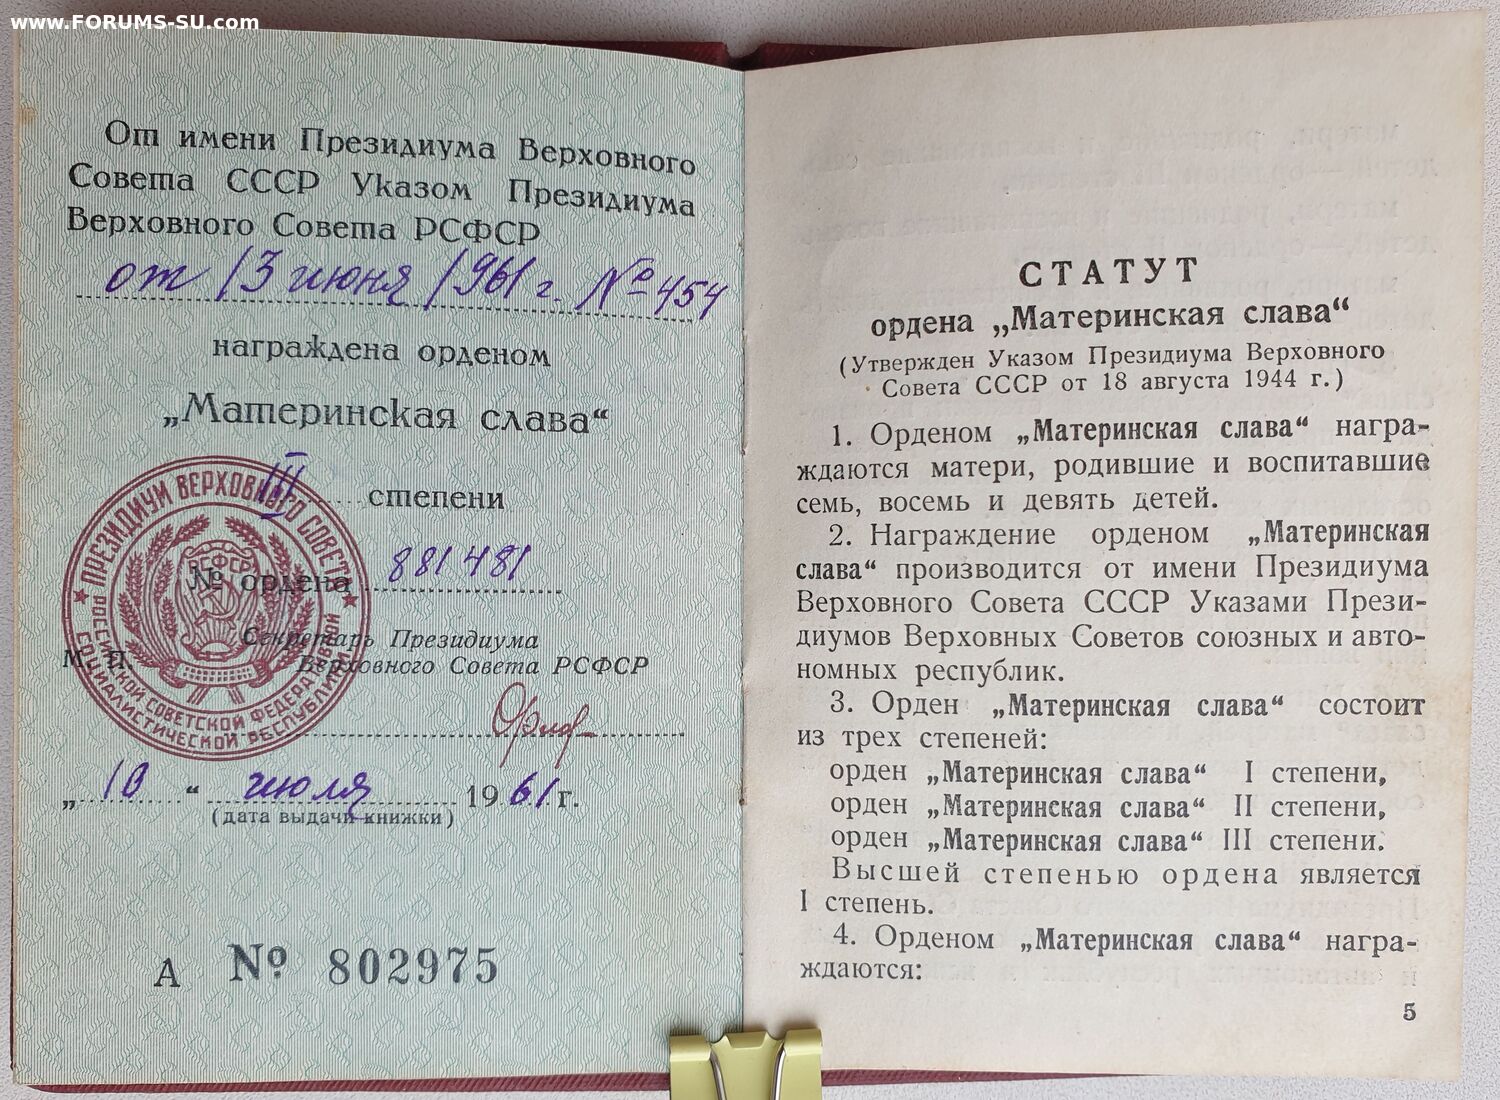 www.FORUMS-SU.com
От имени Президиума Верховного
Совета СССР Указом Президиума
Верховного Совета РСФСР
от 13 июня 1961 г. № 454
награждена орденом
„Материнская слава“
III степени
№ ордена 881481
Секретарь Президиума
Верховного Совета РСФСР
М. П.
ПРЕЗИДИУМ ВЕРХОВНОГО СОВЕТА
РОССИЙСКОЙ СОВЕТСКОЙ ФЕДЕРАТИВНОЙ
СОЦИАЛИСТИЧЕСКОЙ РЕСПУБЛИКИ
РСФСР
„10“ июля 1961 г.
(дата выдачи книжки)
А № 802975
СТАТУТ
ордена „Материнская слава“
(Утвержден Указом Президиума Верховного
Совета СССР от 18 августа 1944 г.)
1. Орденом „Материнская слава“ награ-
ждаются матери, родившие и воспитавшие
семь, восемь и девять детей.
2. Награждение орденом „Материнская
слава“ производится от имени Президиума
Верховного Совета СССР Указами Прези-
диумов Верховных Советов союзных и авто-
номных республик.
3. Орден „Материнская слава“ состоит
из трех степеней:
орден „Материнская слава“ I степени,
орден „Материнская слава“ II степени,
орден „Материнская слава“ III степени.
Высшей степенью ордена является
I степень.
4. Орденом „Материнская слава“ награ-
ждаются:
5